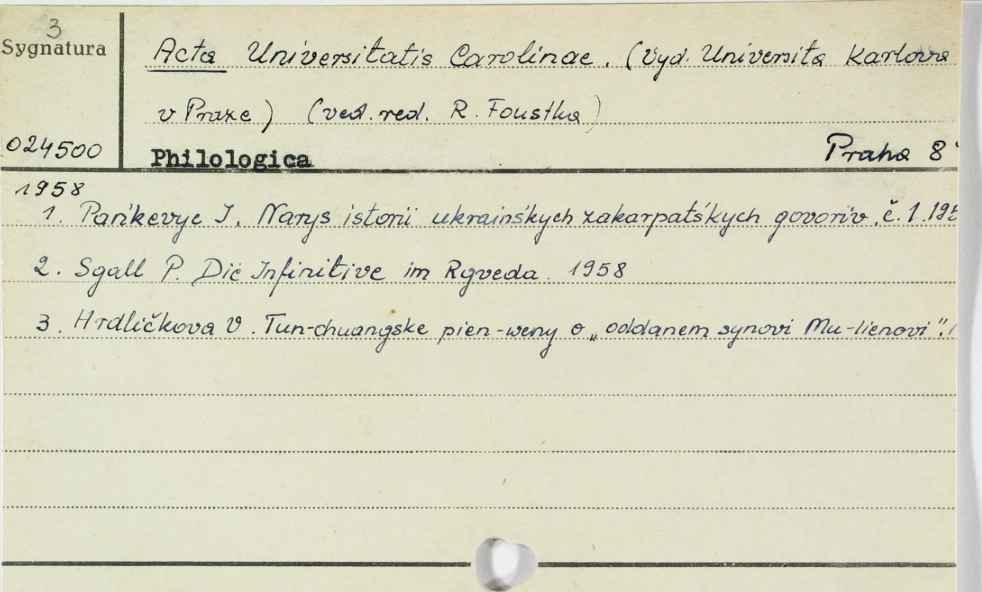 3
Sygnatura
Acta Universitatis Carolinae. (Vyd. Universita Karlova
v Praze) (ved. red. R. Foustka)
024500
Philologica
Praha 8°
1958
1. Pańkevyc I. Narys istorii ukraińśkych zakarpatśkych govoriv. č. 1. 195
2. Sgall P. Die Infinitive im Rgveda. 1958
3. Hrdličkova V. Tun-chuangske pien-weny o „oddanem synovi Mu-lienovi".